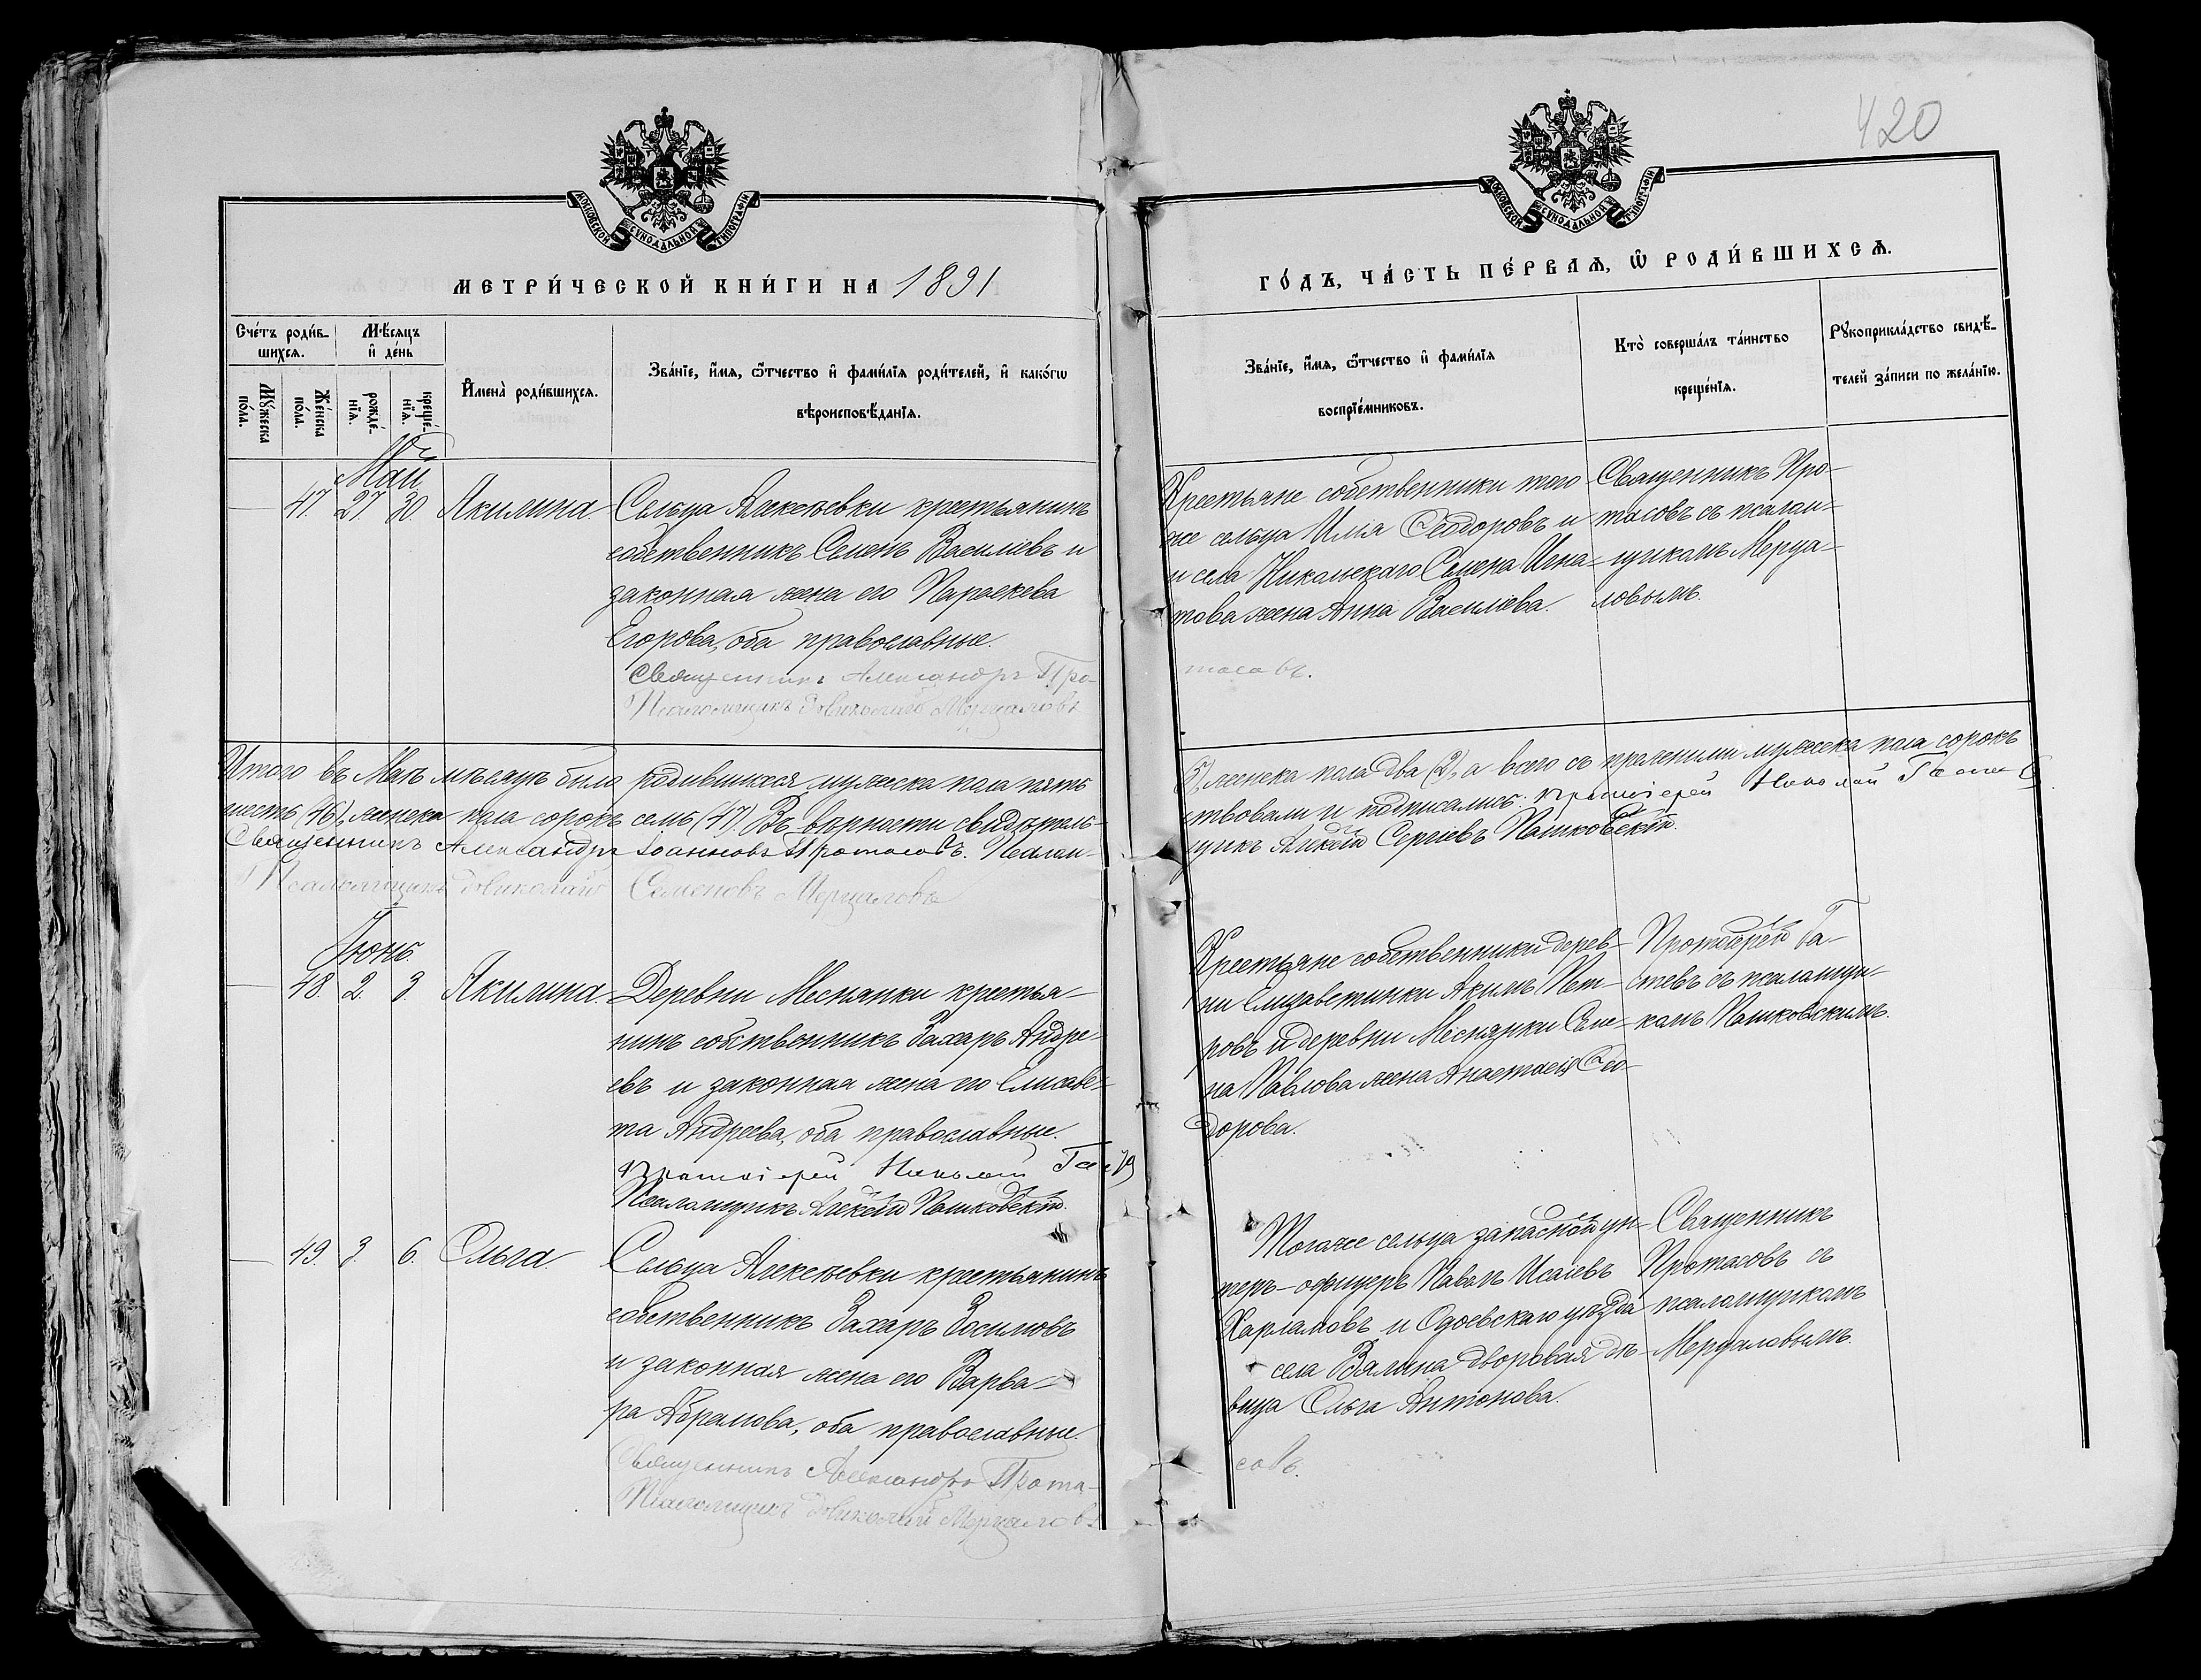 420
МОСКОВСКОЙ СѴНОДАЛЬНОЙ ТИПОГРАФІИ
МОСКОВСКОЙ СѴНОДАЛЬНОЙ ТИПОГРАФІИ
МЕТРИ́ЧЕСКОЙ КНИ́ГИ НА 1891
ГО́ДЪ, ЧА́СТЬ ПЕ́РВАѦ, Ѿ РОДИ́ВШИХСѦ.
Сче́тъ роди́в-
шихсѧ.
Мѣ́сѧцъ
и҆ де́нь
Мꙋ́жеска
по́ла.
Же́нска
по́ла.
рожде́-
нїѧ.
креще́-
нїѧ.
И҆мена̀ роди́вшихсѧ.
Зва́нїе, и҆́мѧ, ѻ҆́тчество и҆ фами́лїѧ роди́телей, и҆ како́гѡ
вѣроисповѣ́данїѧ.
Зва́нїе, и҆́мѧ, ѻ҆́тчество и҆ фами́лїѧ
воспрїе́мниковъ.
Кто̀ соверша́лъ та́инство
креще́нїѧ.
Рꙋкоприкла́дство свидѣ́-
телей за́писи по жела́нїю.
Май.
— 47. 27. 30. Акилина. Сельца Алексѣевки крестьянинъ
собственникъ Семенъ Василіевъ и
законная жена его Параскева
Егорова, оба православные.
Священникъ Александръ Про-
тасовъ.
Псаломщикъ Николай Мерцаловъ
Крестьяне собственники того
же сельца Илія Ѳеодоровъ и
и села Никольскаго Семена Игна-
това жена Анна Василіева.
Священникъ Про-
тасовъ съ псалом-
щикомъ Мерца-
ловымъ.
Итого въ Маѣ мѣсяцѣ было родившихся мужеска пола пять
(5), женска пола два (2), а всего съ прежними мужеска пола сорокъ
шесть (46), женска пола сорокъ семь (47). Въ вѣрности свидѣтель-
ствовали и подписались: Протоіерей Николай
Священникъ Александръ Іоанновъ Протасовъ. Псалом-
щикъ Алексѣй Сергіевъ Пашковскій.
Псаломщикъ Николай Семеновъ Мерцаловъ
Іюнь.
— 48. 2. 3. Акилина. Деревни Меснянки крестья-
нинъ собственникъ Захаръ Андре-
евъ и законная жена его Елисаве-
та Андреева, оба православные.
Протоіерей Николай
Псаломщикъ Алексѣй Пашковскій.
Крестьяне собственники дерев-
ни Елизаветинки Акимъ Пет-
ровъ и деревни Меснянки Семе-
на Павлова жена Анастасія Ѳео-
дорова.
Протоіерей Га-
стевъ съ псаломщи-
комъ Пашковскимъ.
— 49. 3. 6. Ольга. Сельца Алексѣевки крестьянинъ
собственникъ Захаръ Зосимовъ
и законная жена его Варва-
ра Абрамова, оба православные.
Священникъ Александръ Прота-
совъ.
Псаломщикъ Николай Мерцаловъ
Тогоже сельца запасной ун-
теръ-офицеръ Павелъ Исаіевъ
Харламовъ и Одоевскаго уѣзда
села Вялина дворовая дѣ-
вица Ольга Антонова.
Священникъ
Протасовъ съ
псаломщикомъ
Мерцаловымъ.